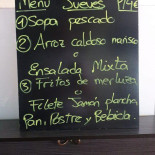 Menú Jueves
① Sopa pescado
② Arroz caldoso marisco
o
Ensalada Mixta
③ Fritos de merluza
o
Filete Jamón plancha
Pan, Postre y Bebida.